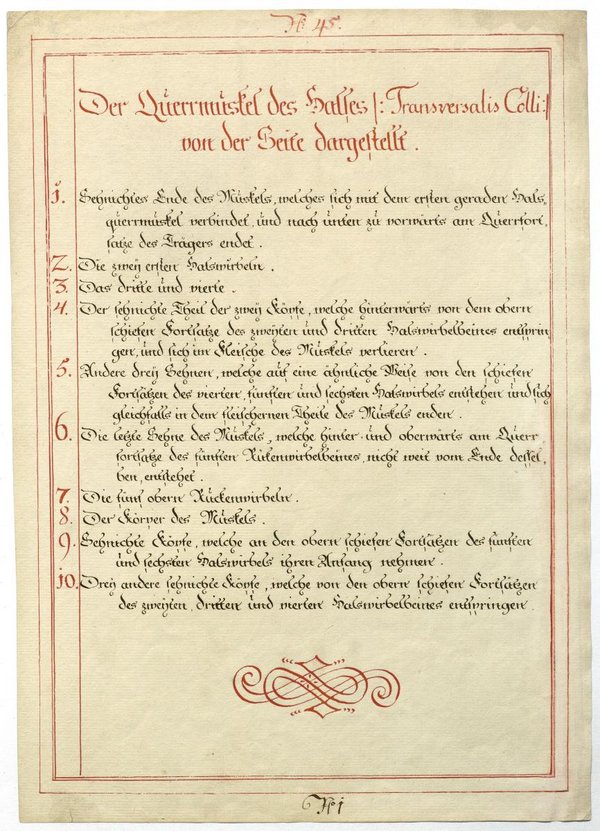 No 45.
Der Querrmuskel des Halses /: Transversalis Colli:/
von der Seite dargestellt.
1. Sehnichtes Ende des Muskels, welches sich mit dem ersten geraden Hals,
querrmuskel verbindet, und nach unten zu vorwärts am Querrfort,
satze des Trägers endet.
2. Die zwey ersten Halswirbeln.
3. Das dritte und vierte.
4. Der sehnichte Theil der zwey Köpfe, welche hinterwärts von dem obern
schiefen Fortsatze des zweyten und dritten Halswirbelbeines entsprin
gen, und sich im Fleische des Muskels verlieren.
5. Andere drey Sehnen, welche auf eine ähnliche Weise von den schiefen
Fortsätzen des vierten, fünften und sechsten Halswirbels entstehen und sich
gleichfalls in dem fleischernen Theile des Muskels enden.
6. Die letzte Sehne des Muskels, welche hinter- und oberwärts am Querr
fortsatze des fünften Rükenwirbelbeines, nicht weit vom Ende dessel,
ben, entstehet.
7. Die fünf obern Rückenwirbeln.
8. Der Körper des Muskels.
9. Sehnichte Köpfe, welche an den obern schiefen Fortsätzen des fünften
und sechsten Halswirbels ihren Anfang nehmen.
10. Drey andere sehnichte Köpfe, welche von den obern schiefen Fortsätzen
des zweyten, dritten und vierten Halswirbelbeines entspringen.